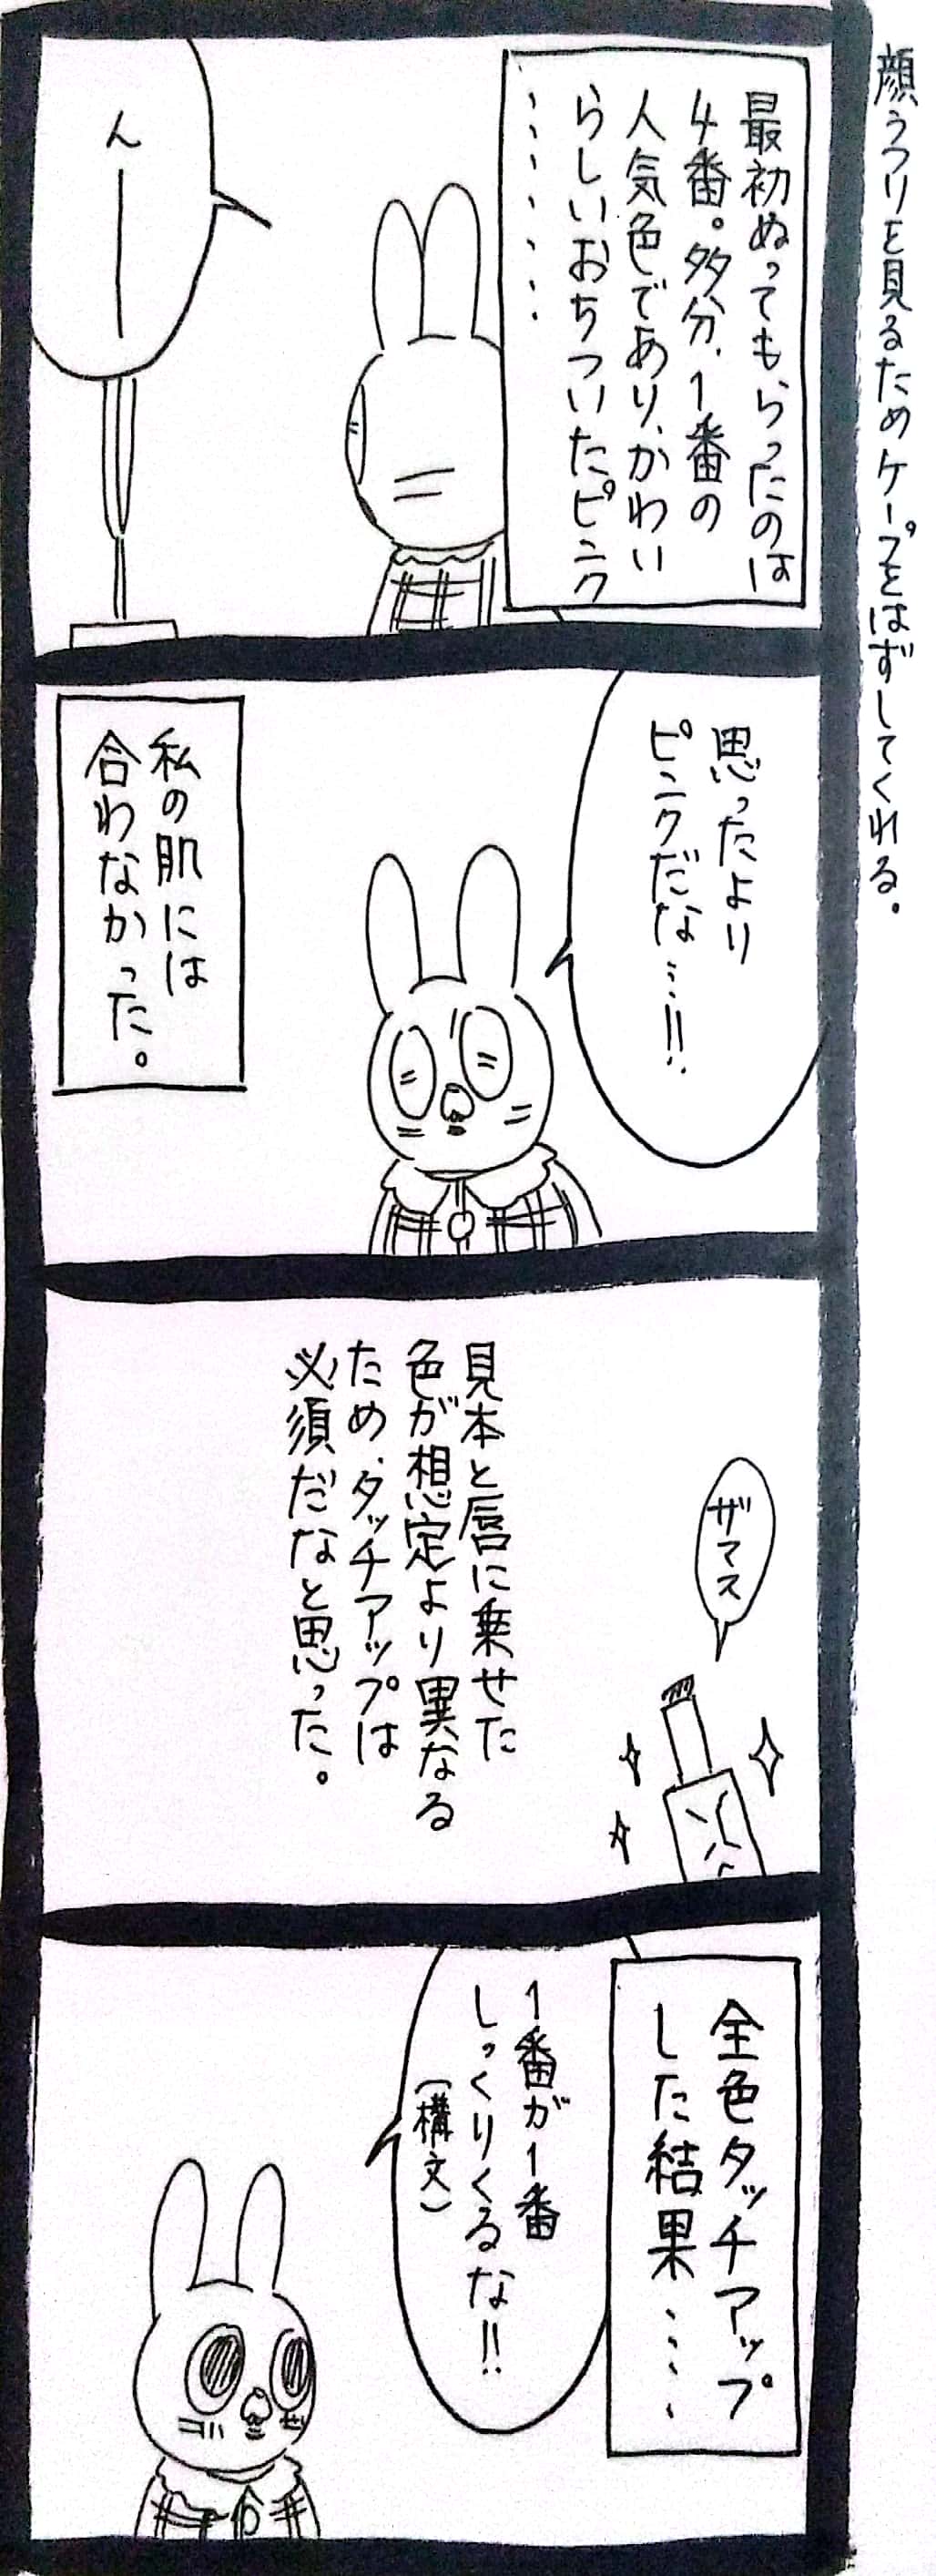 顔うつりを見るためケープをはずしてくれる。
最初ぬってもらったのは
4番。多分、1番の
人気色であり、かわい
らしいおちついたピンク
・・・・・・・
んー
思ったより
ピンクだな…!!
私の肌には
合わなかった。
ザマス
見本と唇に乗せた
色が想定より異なる
ため、タッチアップは
必須だなと思った。
全色タッチアップ
した結果・・・・
1番が1番
しっくりくるな!!
(構文)